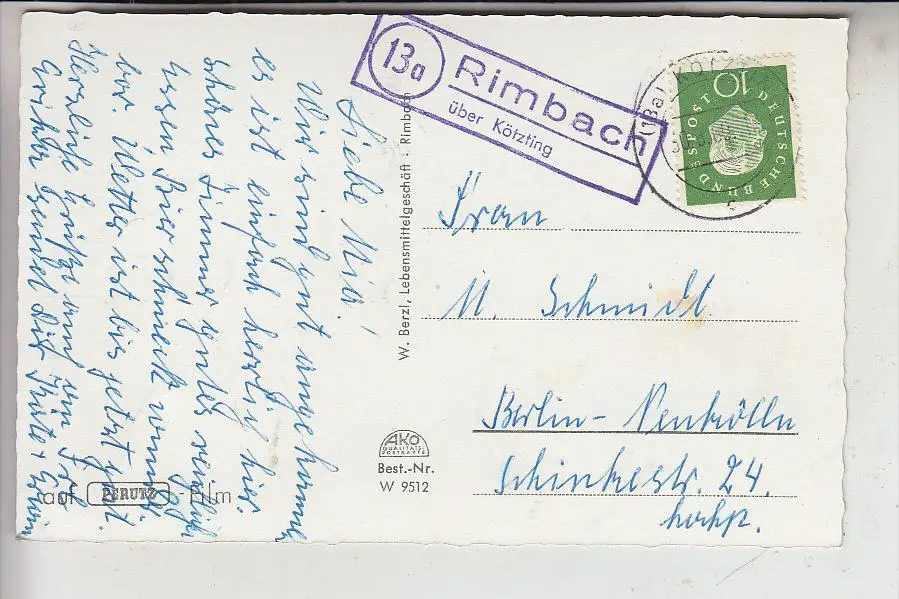 Liebe Mia!
Wir sind gut angekommen
es ist einfach herrlich hier.
schönes Zimmer gutes reichlich
Essen Bier schmeckt
bar. Wetter ist bis jetzt gut
Herzliche Grüße und
sendet Dir
auf PERUTZ - Film
W. Berzl, Lebensmittelgeschäft · Rimbach
AKO
QUALITÄTS-
POSTKARTE
Best.-Nr.
W 9512
13a
Rimbach
über Kötzting
10
DEUTSCHE BUNDESPOST
Frau
M. Schmidt
Berlin-Neukölln
Schinkestr. 24.
hochp.